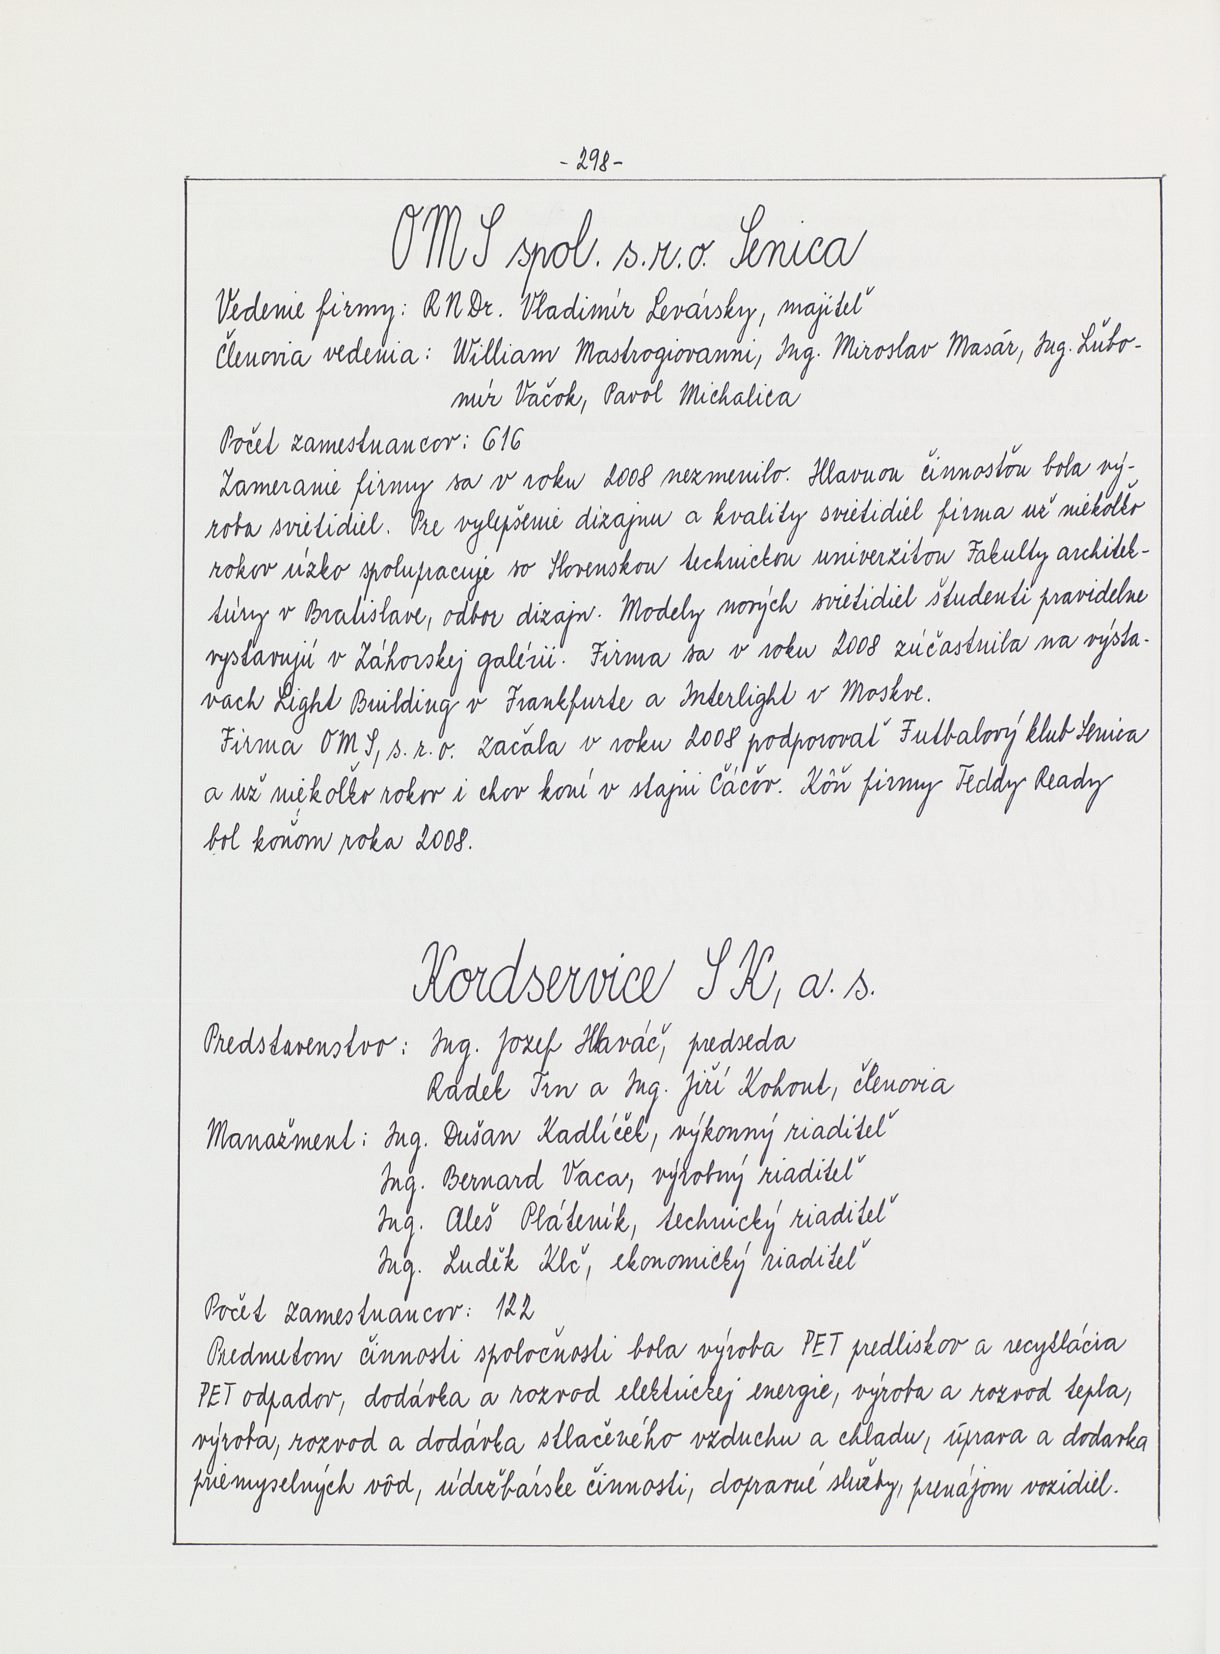 - 298 -
OMS spol. s.r.o. Senica
Vedenie firmy: RNDr. Vladimír Levársky, majiteľ
Členovia vedenia: William Mastrogiovanni, Ing. Miroslav Masár, Ing. Ľubo-
mír Vačok, Pavol Michalica
Počet zamestnancov: 616
Zameranie firmy sa v roku 2008 nezmenilo. Hlavnou činnosťou bola vý-
roba svietidiel. Pre vylepšenie dizajnu a kvality svietidiel firma už niekoľko
rokov úzko spolupracuje so Slovenskou technickou univerzitou Fakulty architek-
túry v Bratislave, odbor dizajn. Modely nových svietidiel študenti pravidelne
vystavujú v Záhorskej galérii. Firma sa v roku 2008 zúčastnila na výsta-
vach Light Building v Frankfurte a Interlight v Moskve.
Firma OMS, s.r.o. začala v roku 2008 podporovať Futbalový klub Senica
a už niekoľko rokov i chov koní v stajni Čáčov. Kôň firmy Teddy Ready
bol koňom roka 2008.
Kordservice SK, a. s.
Predstavenstvo: Ing. Jozef Hlaváč, predseda
Radek Trn a Ing. Jiří Kohout, členovia
Manažment: Ing. Dušan Kadlíček, výkonný riaditeľ
Ing. Bernard Vaca, výrobný riaditeľ
Ing. Aleš Pláteník, technický riaditeľ
Ing. Luděk Klč, ekonomický riaditeľ
Počet zamestnancov: 122
Predmetom činnosti spoločnosti bola výroba PET predliskov a recyklácia
PET odpadov, dodávka a rozvod elektrickej energie, výroba a rozvod tepla,
výroba, rozvod a dodávka stlačeného vzduchu a chladu, úprava a dodavka
priemyselných vôd, údržbárske činnosti, dopravné služby, prenájom vozidiel.